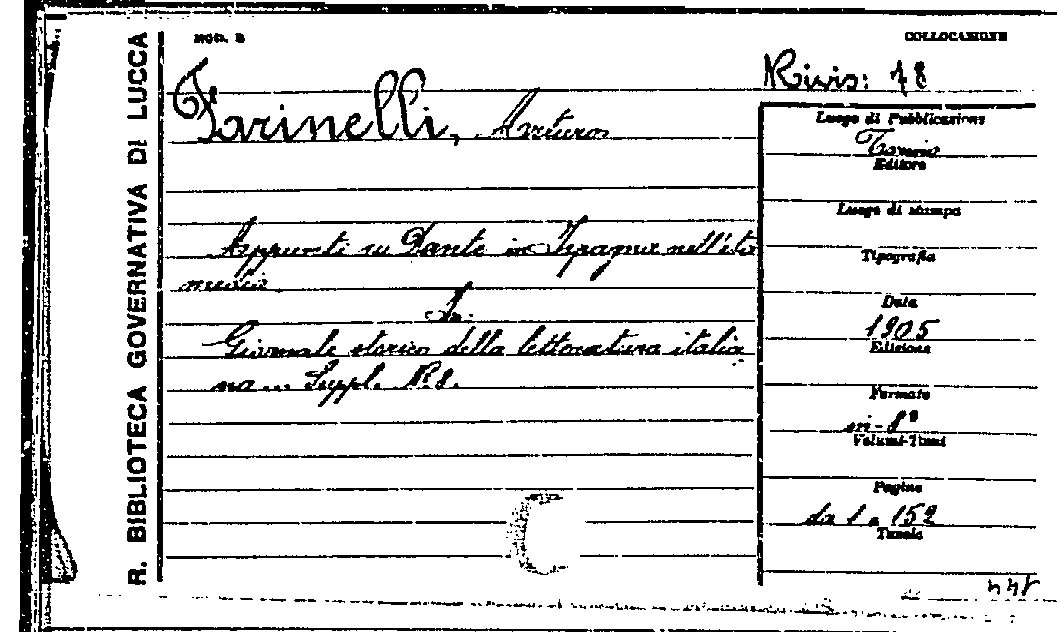 R. BIBLIOTECA GOVERNATIVA DI LUCCA
MOD. 2
COLLOCAZIONE
Rivis: 78
Farinelli, Arturo
Luogo di Pubblicazione
Torino
Editore
Luogo di stampa
Appunti su Dante in Ispagna nell'età
media.
Tipografia
In:
Data
1905
Giornale storico della letteratura italia
na... Suppl. N. 8.
Edizione
Formato
in-8°
Volumi-Tomi
Pagine
da 1 a 152
Tavole